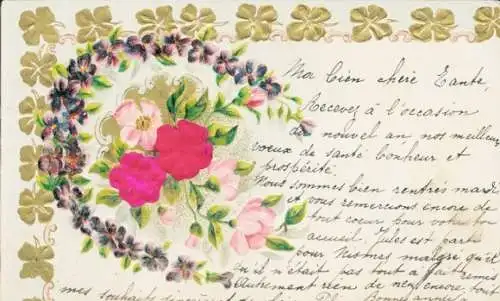 Ma bien chère Tante,
Recevez à l'occasion
du nouvel an nos meilleurs
voeux de santé bonheur et
prospérité.
Nous sommes bien rentrés mardi
et vous remercions encore de
tout coeur pour votre bon
accueil. Jules est parti
pour Nismes malgré qu'il
n'était pas tout à fait remis
Autrement rien de neuf encore, tous
mes souhaits